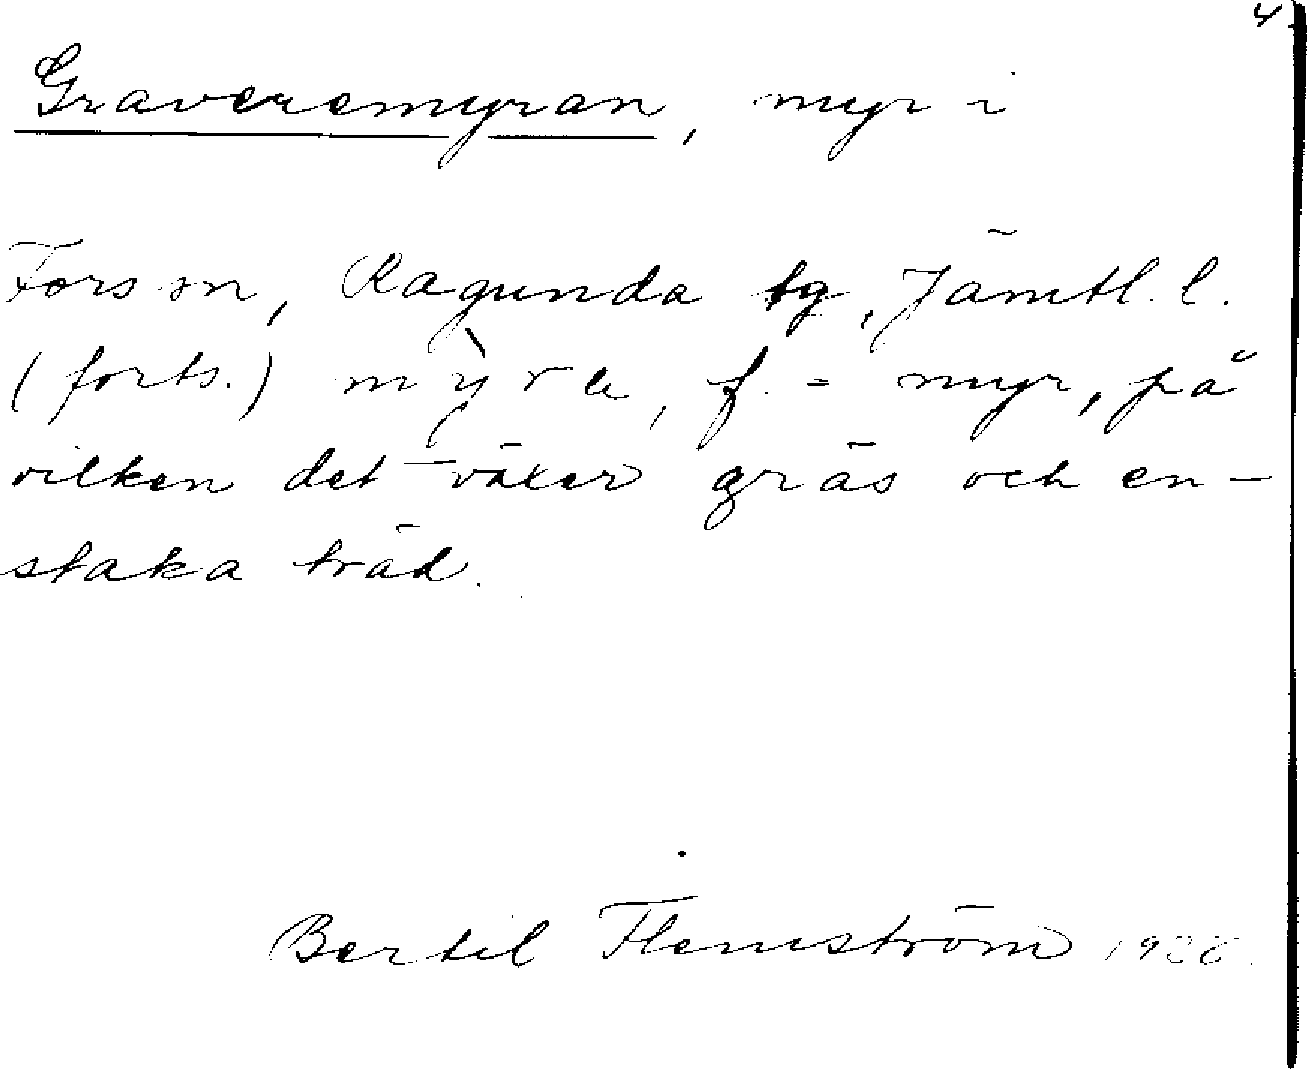 4
Graveremyran, myr i
Fors sn, Ragunda tg, Jämtl. l.
(forts.) mỳra, f. = myr, på
vilken det växer gräs och en-
staka träd.
Bertil Flemström